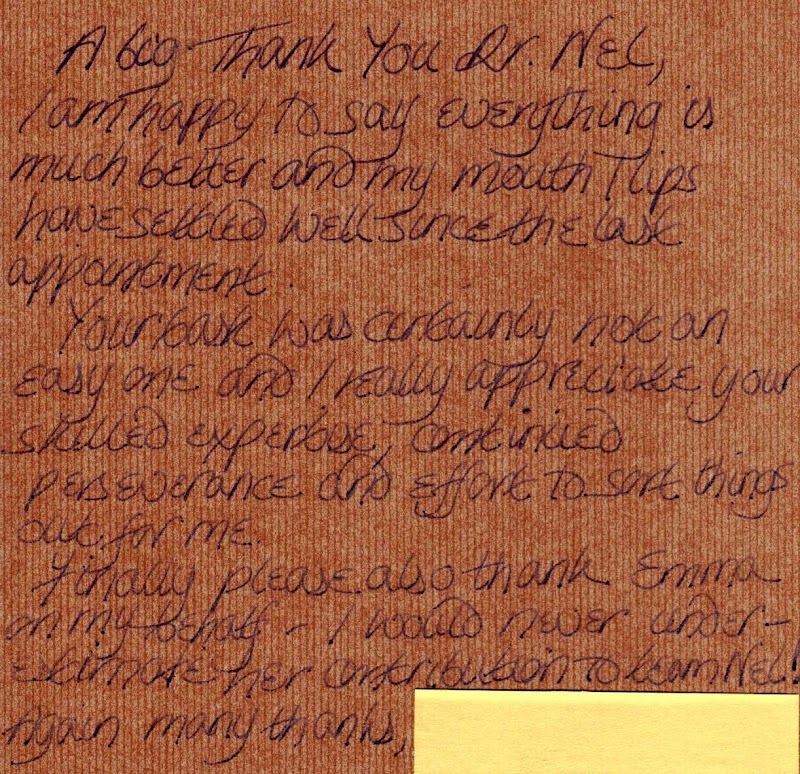 A big Thank You Dr. Nel,
I am happy to say everything is
much better and my mouth / lips
have settled well since the last
appointment.
Your task was certainly not an
easy one and I really appreciate your
skilled expertise, continued
perseverance and effort to sort things
out for me.
Finally please also thank Emma
on my behalf - I would never under-
estimate her contribution to team Nel!
Again many thanks,